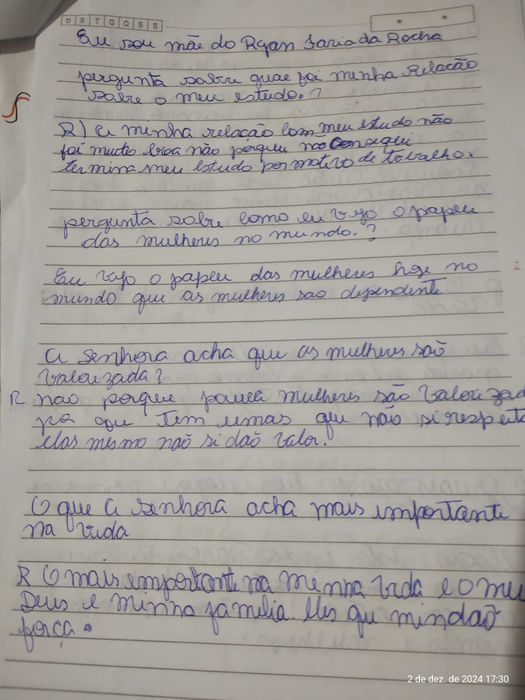 D S T Q Q S S
Eu sou mãe do Ryan Faria da Rocha
pergunta sobre quae foi minha Relacão
sobre o meu estudo.?
R) a minha relacão com meu estudo não
foi muito boa não porque não consegui
termina meu estudo por motivo de trabalho.
pergunta sobre como eu vejo o papeu
das mulheres no mundo.?
Eu vejo o papeu das mulheres hoje no
mundo que as mulheres sao dependente
A Senhora acha que as mulheres são
Valorizada?
R nao porque pouca mulheres são Valorizad
que tem umas que não si respeita
Elas mesmo não si dão valor.
O que a senhora acha mais importante
na vida
R O mais importante na minha vida e o meu
Deus e minha família Eles que mindão
força.
2 de dez. de 2024 17:30